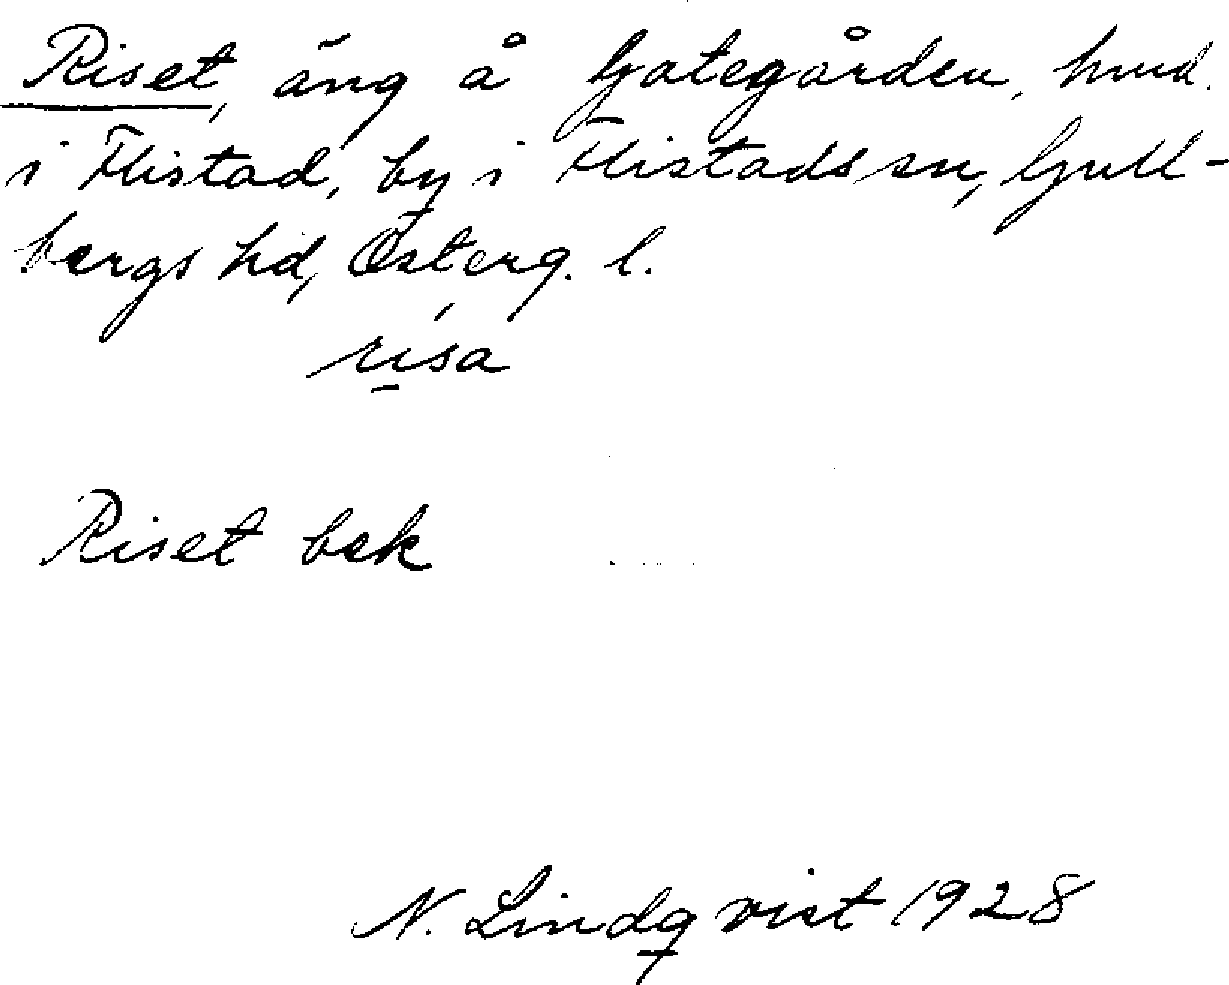 Riset, äng å Gategården, hmd.
i Flistad, by i Flistads sn, Gull-
bergs hd, Österg. l.
risa
Riset bek
N. Lindqvist 1928